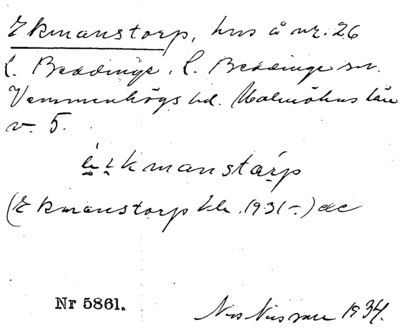 Ekmanstorp, hus å nr. 26
L. Beddinge, L. Beddinge sn.
Vemmenhögs hd. Malmöhus län
v. 5.
kmanstårp
(Ekmanstorp kbr. 1931-.)
Nr 5861.
Nils Nilsson 1934.